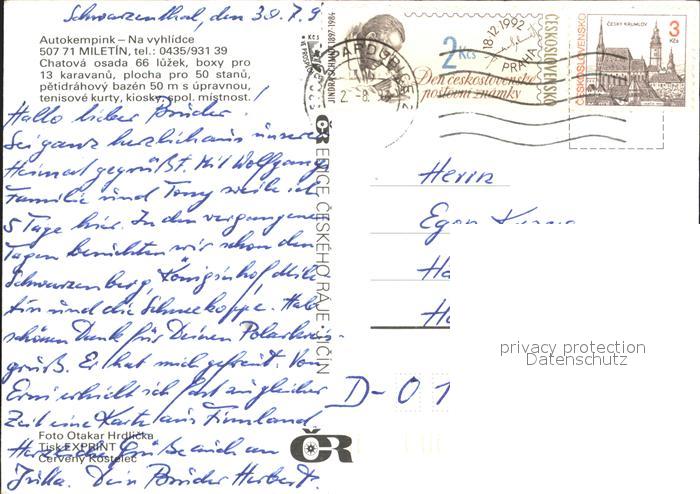 Schwarzenthal, den 30.7.9
Autokempink – Na vyhlídce
507 71 MILETÍN, tel.: 0435/931 39
Chatová osada 66 lůžek, boxy pro
13 karavanů, plocha pro 50 stanů,
pětidráhový bazén 50 m s úpravnou,
tenisové kurty, kiosky, spol. místnost.
Hallo lieber Bruder!
Sei ganz herzlich aus unserer
Heimat gegrüßt. Mit Wolfgangs
Familie und Tony weile ich
5 Tage hier. In den vergangenen
Tagen besuchten wir schon den
Schwarzenberg, Königinhof, Mile-
tin und die Schneekoppe. Hab
schönen Dank für Deinen Polarkreis-
gruß. Er hat mich gefreut. Von
Erni erhielt ich fast zu gleicher
Zeit eine Karte aus Finnland
Herzliche Grüße auch an
Jutta. Dein Bruder Herbert.
Foto Otakar Hrdlička
Tisk EXPRINT
Červený Kostelec
EDICE ČESKÉHO RÁJE JIČÍN
ČR
JINDRA SCHMIDT 1897-1984
2 Kčs
18.12.1992
PRAHA
Den československé
poštovní známky
ČESKOSLOVENSKO
PARDUBICE
2.-8.
ČESKOSLOVENSKO
ČESKÝ KRUMLOV
3
Kčs
Herrn
Egon
D-01
privacy protection
Datenschutz